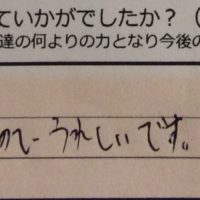 ていかがでしたか？（
達の何よりの力となり今後の
めて うれしいです。